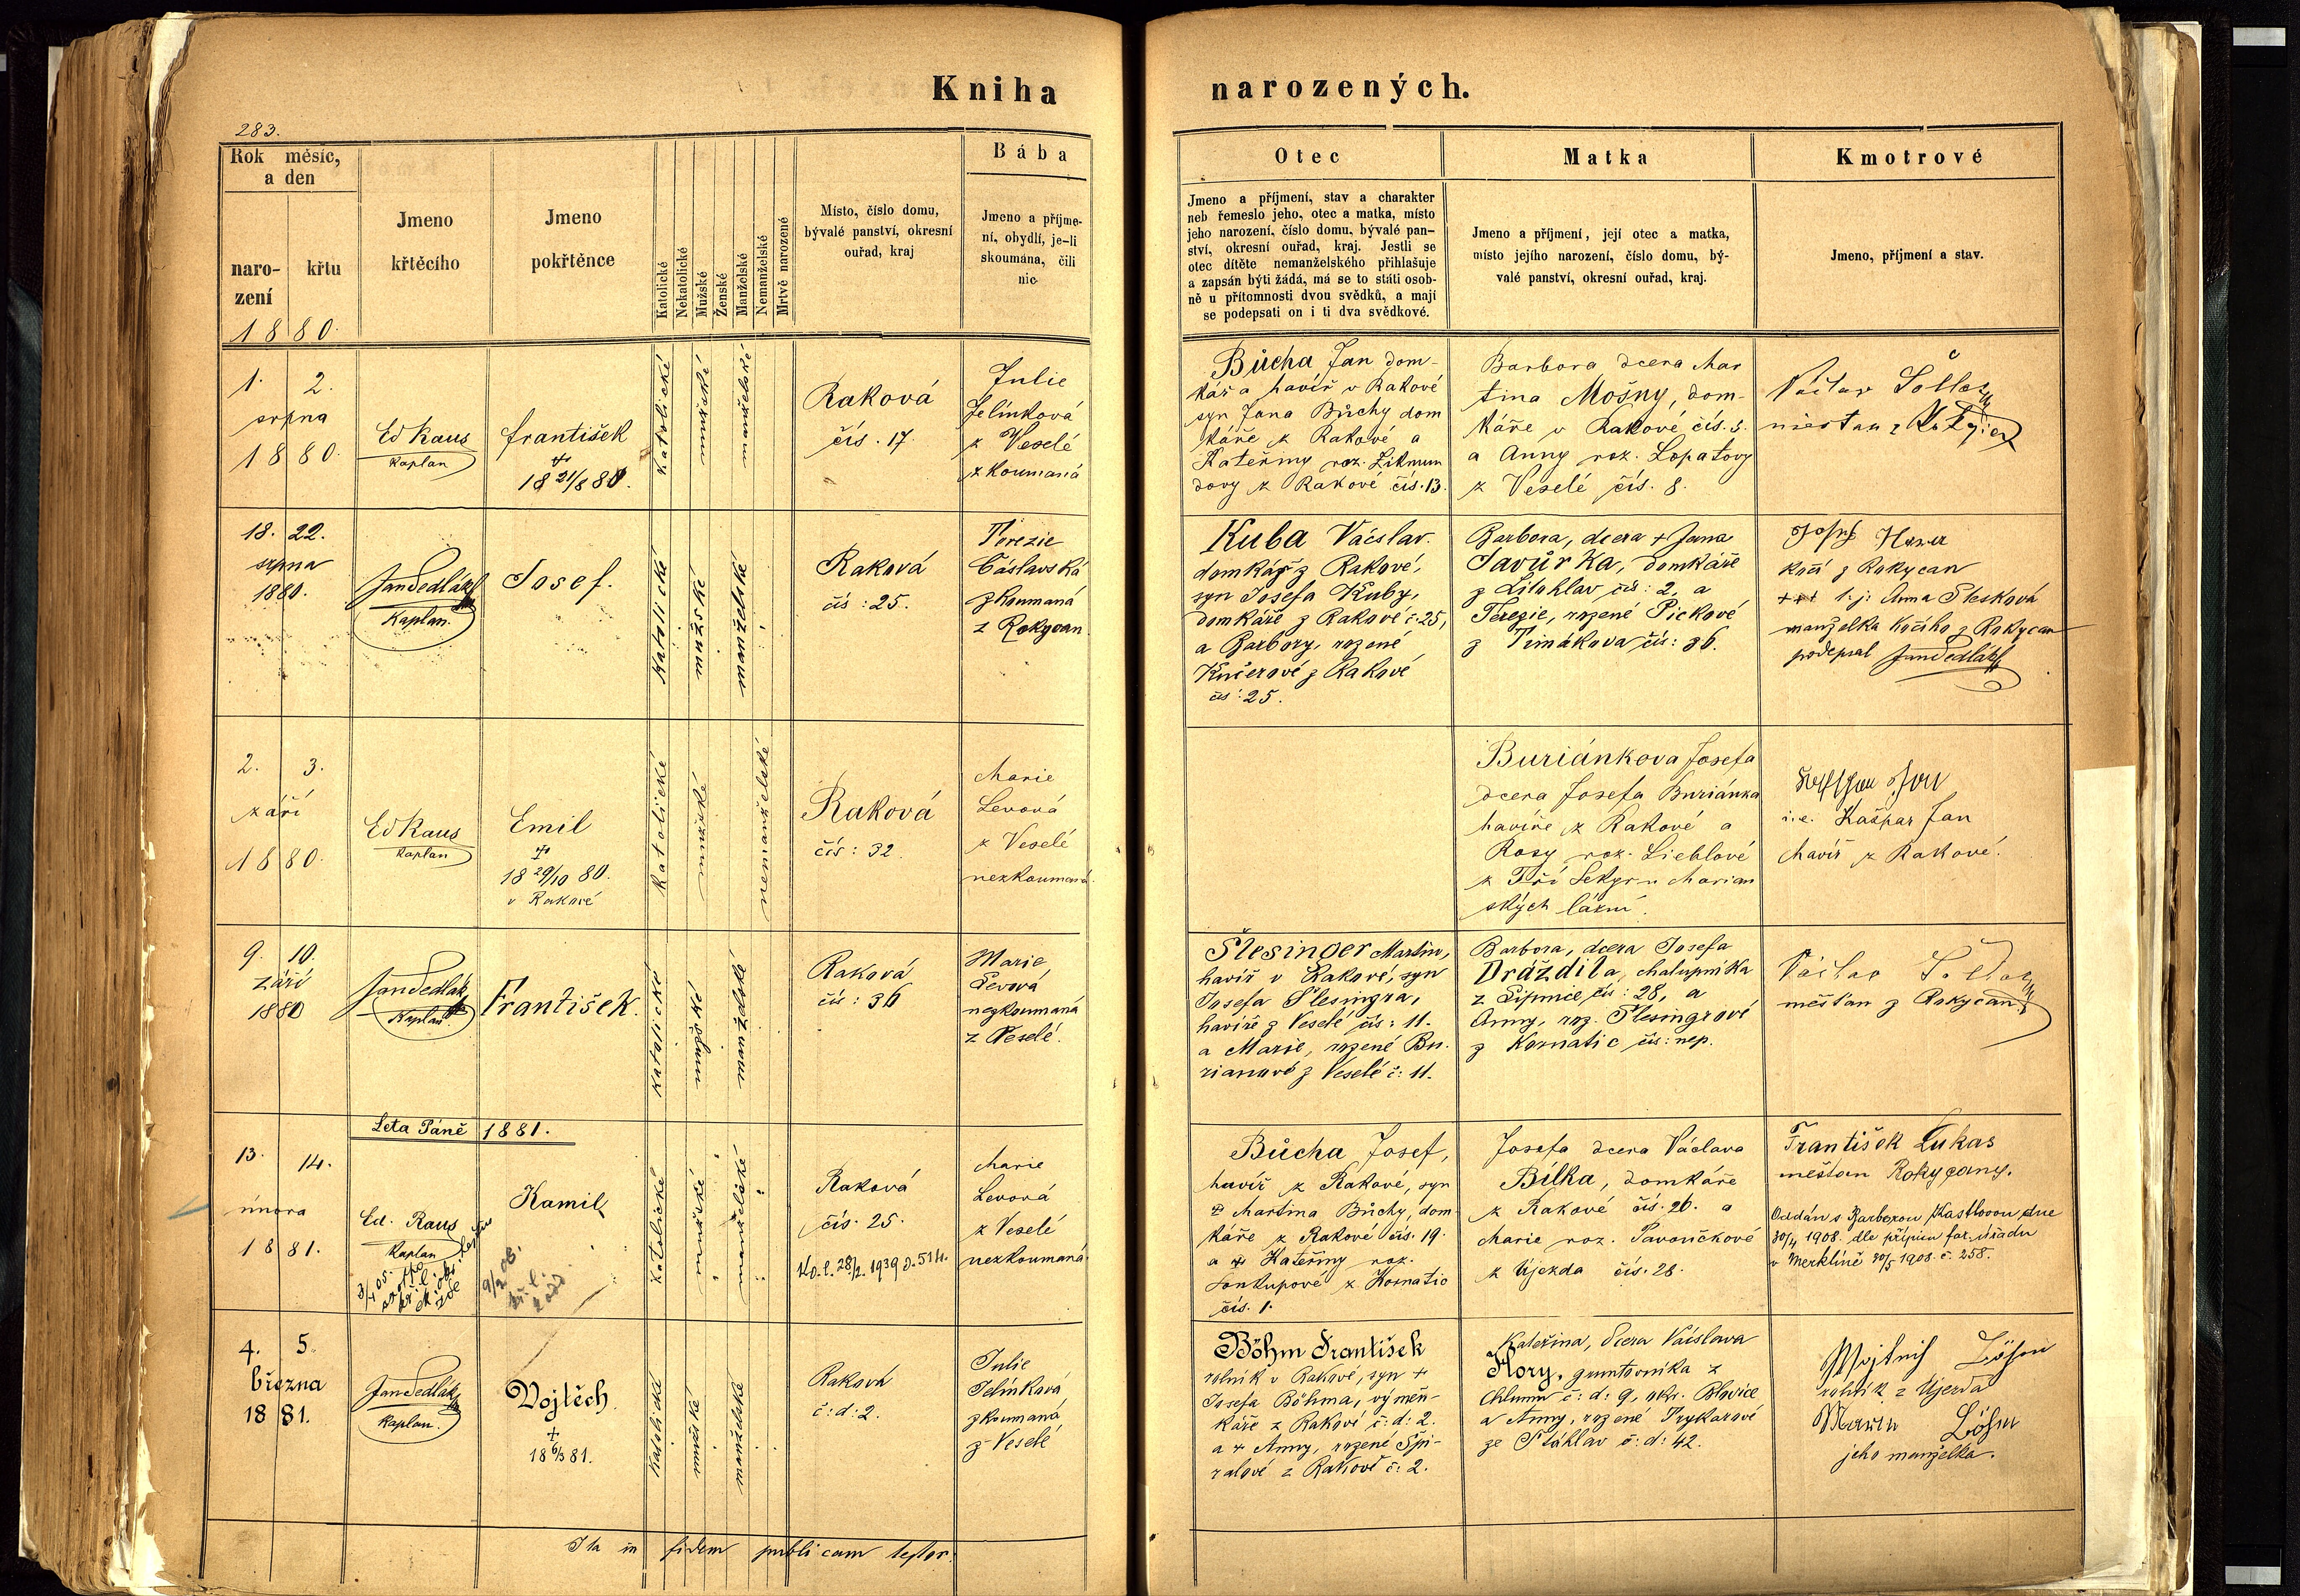 Kniha narozených.
283.
Rok měsíc, a den
narození
křtu
Jmeno křtěcího
Jmeno pokřtěnce
Katolické
Nekatolické
Mužské
Ženské
Manželské
Nemanželské
Mrtvě narozené
Místo, číslo domu,
bývalé panství, okresní
ouřad, kraj
Bába
Jmeno a příjme-
ní, obydlí, je-li
skoumána, čili
nic
Otec
Jmeno a příjmení, stav a charakter
neb řemeslo jeho, otec a matka, místo
jeho narození, číslo domu, bývalé pan-
ství, okresní ouřad, kraj. Jestli se
otec dítěte nemanželského přihlašuje
a zapsán býti žádá, má se to státi osob-
ně u přítomnosti dvou svědků, a mají
se podepsati on i ti dva svědkové.
Matka
Jmeno a příjmení, její otec a matka,
místo jejího narození, číslo domu, bý-
valé panství, okresní ouřad, kraj.
Kmotrové
Jmeno, příjmení a stav.
1880.
1. 2.
srpna
1880.
Ed Raus
Kaplan
František
+
18 21/8 80.
katolické
mužské
manželské
Raková
čís. 17.
Julie
Jelínková
z Veselé
zkoumaná
Bůcha Jan dom-
kář a havíř v Rakové
syn Jana Bůchy dom
káře z Rakové a
Kateřiny roz. Zikmun
dovy z Rakové čís. 13.
Barbora dcera Mar
tina Mošny, dom-
káře v Rakové čís. 3.
a Anny roz. Lopatovy
z Veselé čís. 8.
Václav
měšťan z
18. 22.
srpna
1880.
Jan Sedlák
Kaplan.
Josef.
katolické
mužské
manželské
Raková
čís: 25.
Terezie
Čáslavská
zkoumaná
z Rokycan.
Kuba Vácslav.
domkář z Rakové,
syn Josefa Kuby,
domkáře z Rakové č. 25,
a Barbory, rozené
Kučerové z Rakové
čís: 25.
Barbora, dcera + Jana
Javůrka, domkáře
z Litohlav čís: 2, a
Terezie, rozené Pickové
z Timákova čís: 36.
Josef
kočí z Rokycan
+++ t. j. Anna Plesková
manželka kočího z Rokycan
podepsal Jan Sedlák
2. 3.
září
1880.
Ed Raus
Kaplan
Emil
+
18 29/10 80.
v Rakové
katolické
mužské
nemanželské
Raková
čís: 32.
Marie
Levová
z Veselé
nezkoumaná.
Buriánkova Josefa
dcera Josefa Buriánka
havíře z Rakové a
Rosy roz. Lieblové
z Tří Sekyr u Marian
ských lázní.
i. e. Kašpar Jan
havíř z Rakové.
9. 10.
září
1880
Jan Sedlák
Kaplan
František.
katolické
mužské
manželské
Raková
čís: 36
Marie
Levová
nezkoumaná
z Veselé.
Šlesinger Martin,
havíř v Rakové, syn
Josefa Šlesingra,
havíře z Veselé čís: 11.
a Marie, rozené Bu-
rianové z Veselé č: 11.
Barbora, dcera Josefa
Dráždila, chalupníka
z Lipnice, čís: 28, a
Anny, roz. Šlesingrové
z Kornatic čís: nep.
Václav
měšťan z Rokycan
Leta Páně 1881.
13. 14.
února
1881.
Ed. Raus
Kaplan
Kamil
katolické
mužské
manželské
Raková
čís. 25.
28/2. 1939
Marie
Levová
z Veselé
nezkoumaná
Bůcha Josef,
havíř z Rakové, syn
+ Martina Bůchy, dom
káře z Rakové čís. 19.
a + Kateřiny roz.
z Kornatic
čís. 1.
Josefa dcera Václava
Bílka, domkáře
z Rakové čís. 26. a
Marie roz. Pavorčkové
z Újezda čís. 28.
František Lukas
měšťan Rokycany.
Oddán s Barborou dne
30/4 1908. dle přípisu far. úřadu
v Merklíně 30/5 1908. č. 258.
4. 5.
března
1881.
Jan Sedlák
Kaplan.
Vojtěch.
+
18 6/3 81.
katolické
mužské
manželské
Raková
č: d: 2.
Julie
Jelínková
zkoumaná
z Veselé
Böhm František
rolník v Rakové, syn +
Josefa Böhma, výměn-
káře z Rakové č: d: 2.
a + Anny, rozené Špi-
ralové z Rakové č: 2.
Kateřina, dcera Václava
Hory, gruntovníka z
Chlumu č: d: 9, okr. Blovice
a Anny, rozené Trykarové
ze Šťáhlav č: d: 42.
Böhm
rolník z Újezda
Böhm
jeho manželka.
Ita in fidem publicam testor.